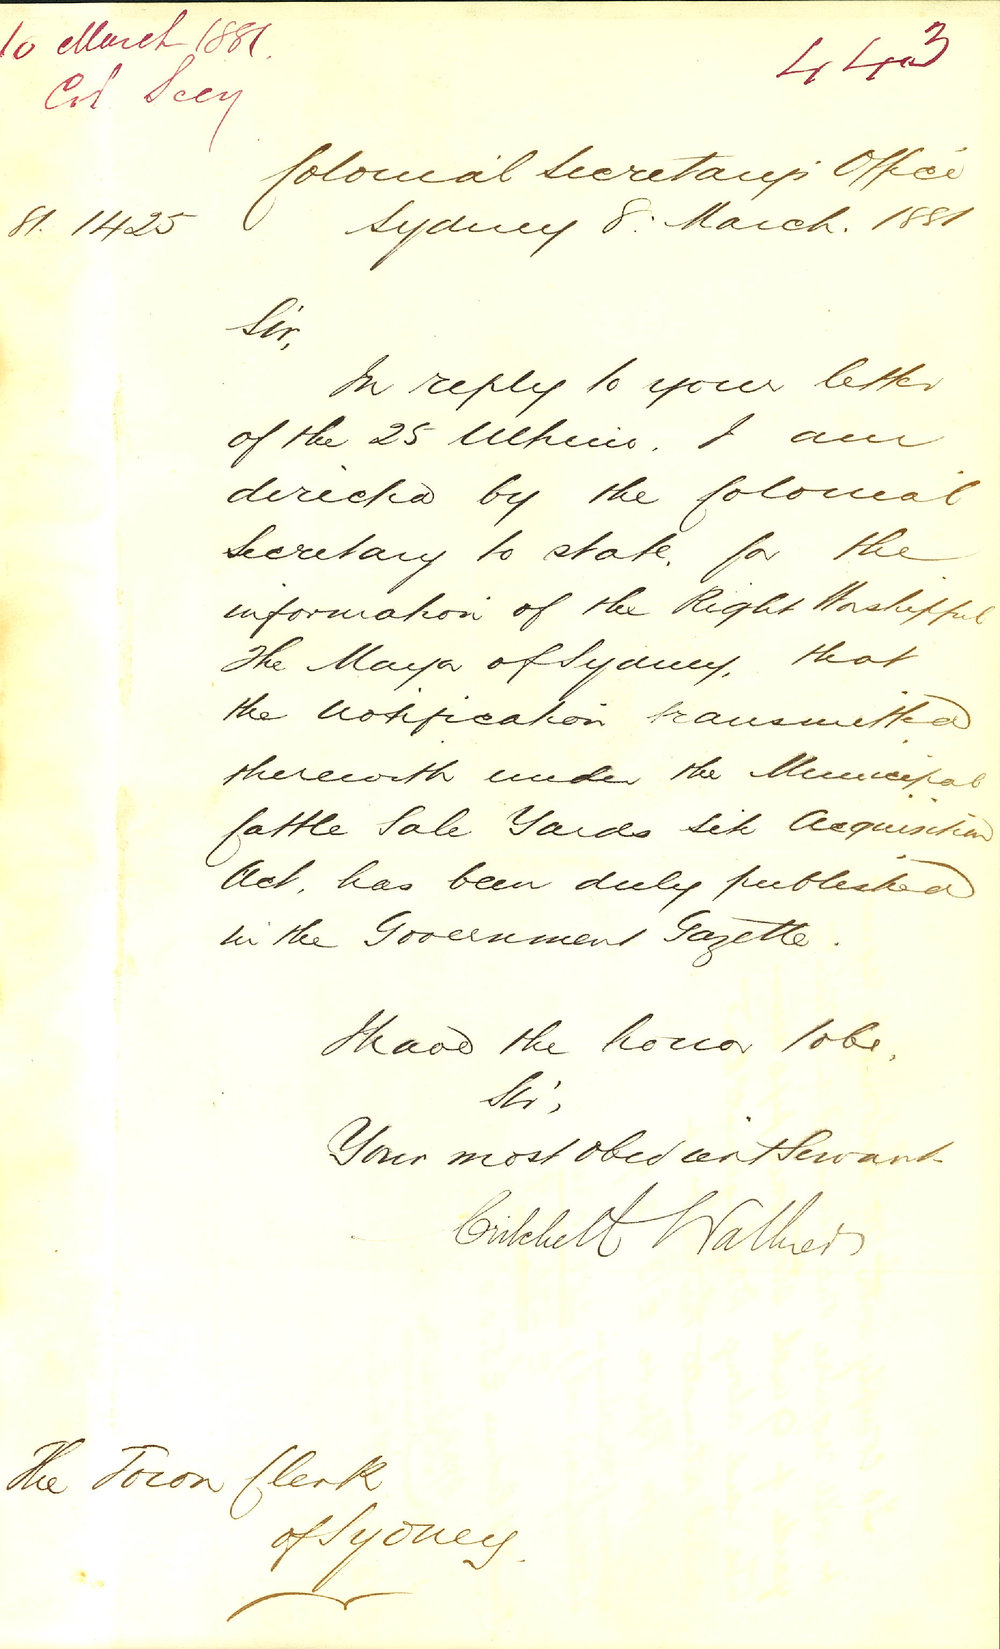 10 March 1881.
Col Secy
443
Colonial Secretary's Office
81. 1425
Sydney 8: March. 1881
Sir,
In reply to your letter
of the 25 Ultimo. I am
directed by the Colonial
Secretary to state, for the
information of the Right Worshipful
The Mayor of Sydney, that
the notification transmitted
therewith under the Municipal
Cattle Sale Yards site Acquisition
Act, has been duly published
in the Government Gazette.
I have the honor to be,
Sir,
Your most obedient Servant
Critchett Walker
The Town Clerk
of Sydney.